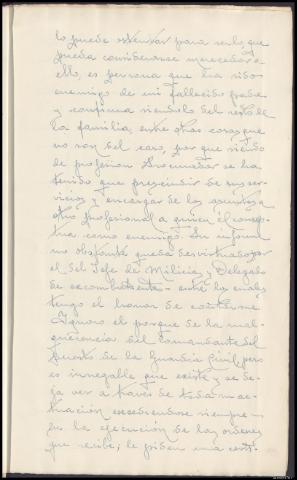 lo puede ostentar para verlo que
pueda considerarse merecedor a
ello, es persona que ha sido
enemigo de mi fallecido padre
y continua siendolo del resto de
la familia, entre otras cosas que
no son del caso, por que siendo
de profesion Procurador se ha
tenido que prescindir de sus ser-
vicios y encargar de los asuntos a
otro profesional a quien él concep-
tua como enemigo. Su informe
no obstante queda desvirtuado por
el del Jefe de Milicias y Delegado
de excombatientes entre los cuales
tengo el honor de contarme
Ignoro el porque de la mal-
querencia del Comandante del
Puesto de la Guardia Civil, pero
es innegable que existe y se de-
ja ver a traves de toda su ac-
tuación excediendose siempre
en la ejecución de las ordenes
que recibe; le piden una certi-